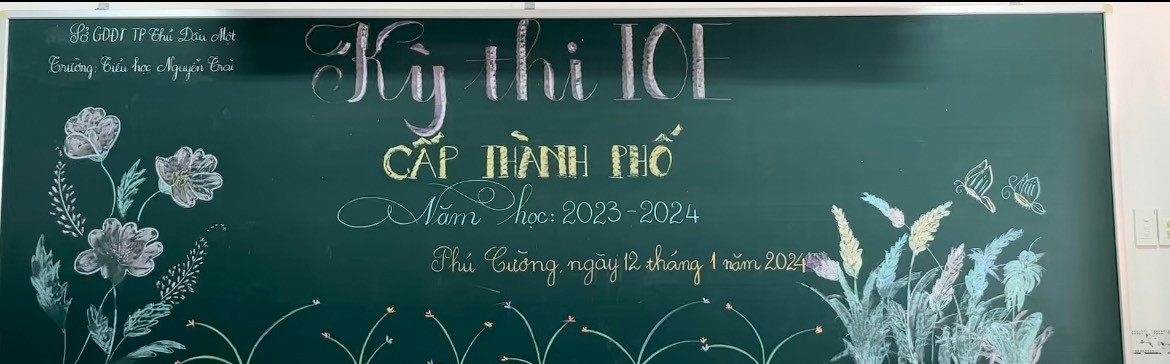 Sở GDĐT TP Thủ Dầu Một
Trường: Tiểu học Nguyễn Trãi
Kỳ thi IOE
CẤP THÀNH PHỐ
Năm học: 2023-2024
Phú Cường, ngày 12 tháng 1 năm 2024